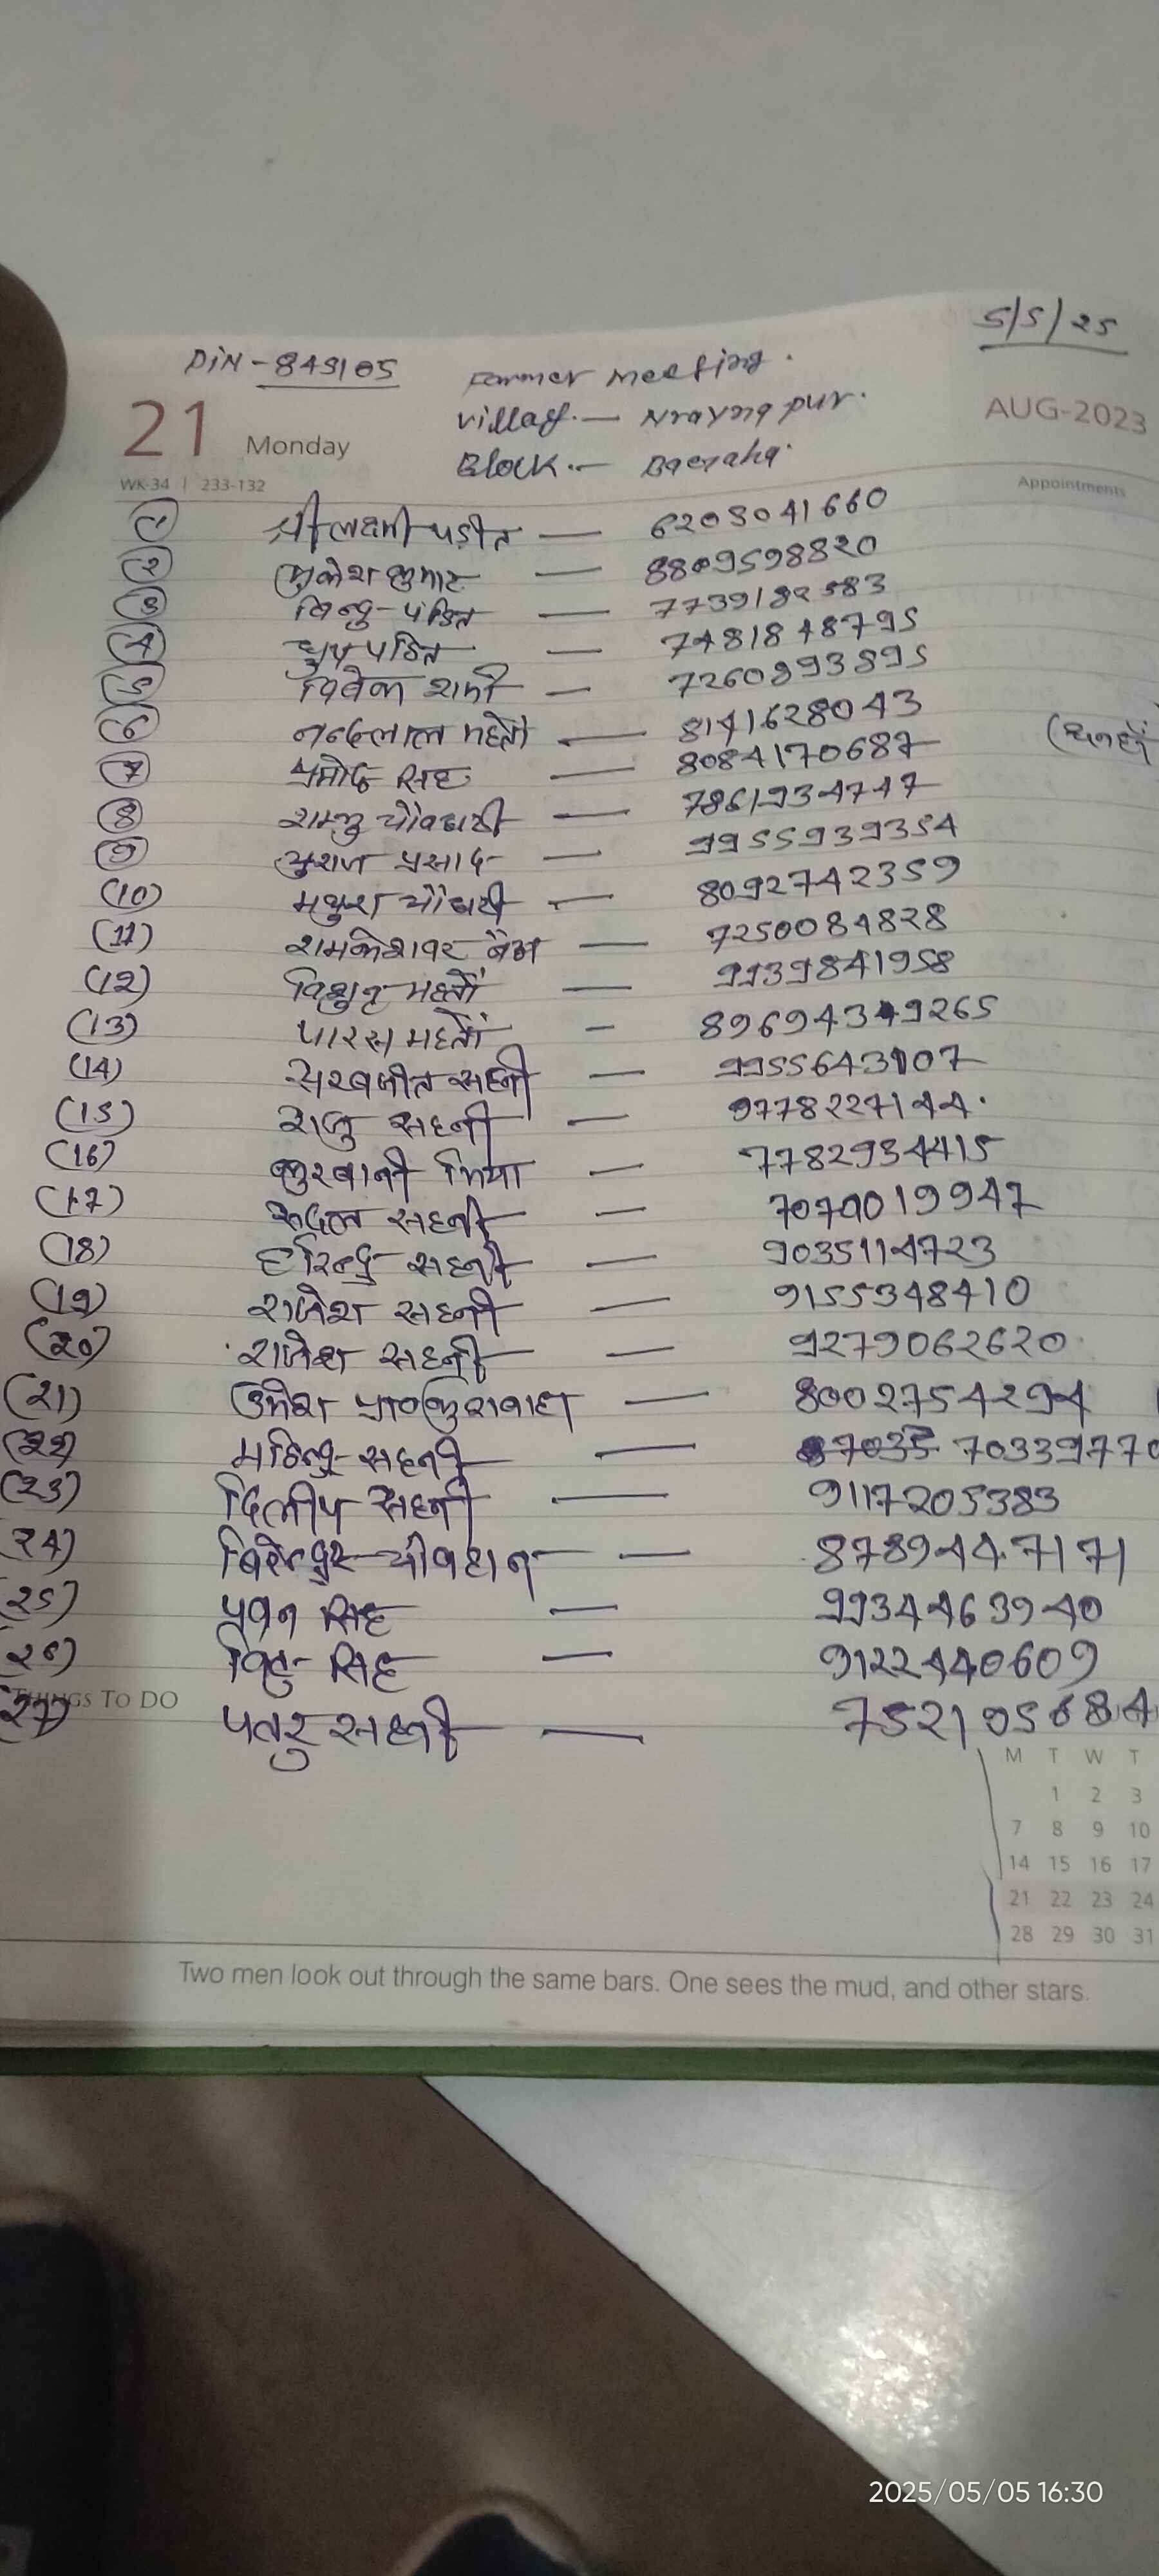 5/5/25
PIN - 845105
Farmer Meeting.
21 Monday
Village. — Nrayngpur.
AUG-2023
Block. —
WK-34 | 233-132
Appointments
(1) श्री लक्ष्मी पंडीत — 6203041660
(2) मुकेश कुमार — 8809598820
(3) विन्दु - पंडित — 7739182583
(4) ध्रुप पंडित — 7481848795
(5) विवेक शर्मा — 7260893895
(6) नन्दलाल महतो — 8141628043
(7) प्रमोद सिंह — 8084170687
(8) शम्भु चौधरी — 7861934747
(9) सुराज प्रसाद — 9955939354
(10) मथुरा चौधरी — 8092742359
(11) रामकेशवर बैठा — 7250084828
(12) महतों — 9939841958
(13) पारस महतों — 89694349265
(14) सरबजीत सहनी — 9955643107
(15) राजु सहनी — 9778227144.
(16) कुरबानी मिया — 7782934415
(17) रुदल सहनी — 7070019947
(18) हरिन्द्र सहनी — 9035114723
(19) राजेश सहनी — 9155348410
(20) राजेश सहनी — 9279062620
(21) उमेश प्र० कुशवाहा — 8002754294
(22) सहनी — 70339770
(23) दिलीप सहनी — 9117205383
(24) बिरेन्द्र चौवहान — 8789447171
(25) पवन सिंह — 9934463940
(26) सिंह — 9122440609
(27) पतरु सहनी — 752105684
THINGS TO DO
M T W T
1 2 3
7 8 9 10
14 15 16 17
21 22 23 24
28 29 30 31
Two men look out through the same bars. One sees the mud, and other stars.
2025/05/05 16:30